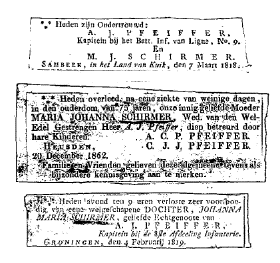 * * Heden zijn Ondertrouwd:
A. J. PFEIFFER,
Kapitein bij het Batt. Inf. van Ligne, No. 9.
En
M. J. SCHIRMER.
SAMBEEK, in het Land van Kuik, den 7 Maart 1818.
Heden overleed, na eene ziekte van weinige dagen,
in den ouderdom van 75 jaren, onze innig geliefde Moeder
MARIA JOHANNA SCHIRMER, Wed. van den Wel-
Edel Gestrengen Heer A. J. Pfeiffer, diep betreurd door
hare Kinderen.
A. C. P. PFEIFFER.
HEUSDEN, C. J. J. PFEIFFER.
20 December 1862.
Familie en Vrienden gelieven deze algemeene even als
bijzondere kennisgeving aan te merken.
* * Heden avond ten 9 uren verloste zeer voorspoe-
dig van eene welgeschapene DOCHTER, JOHANNA
MARIA SCHIRMER, geliefde Echtgenoote van
A. J. PFEIFFER,
Kapitein bij de 8ste Afdeeling Infanterie.
GRONINGEN, den 4 Februarij 1819.